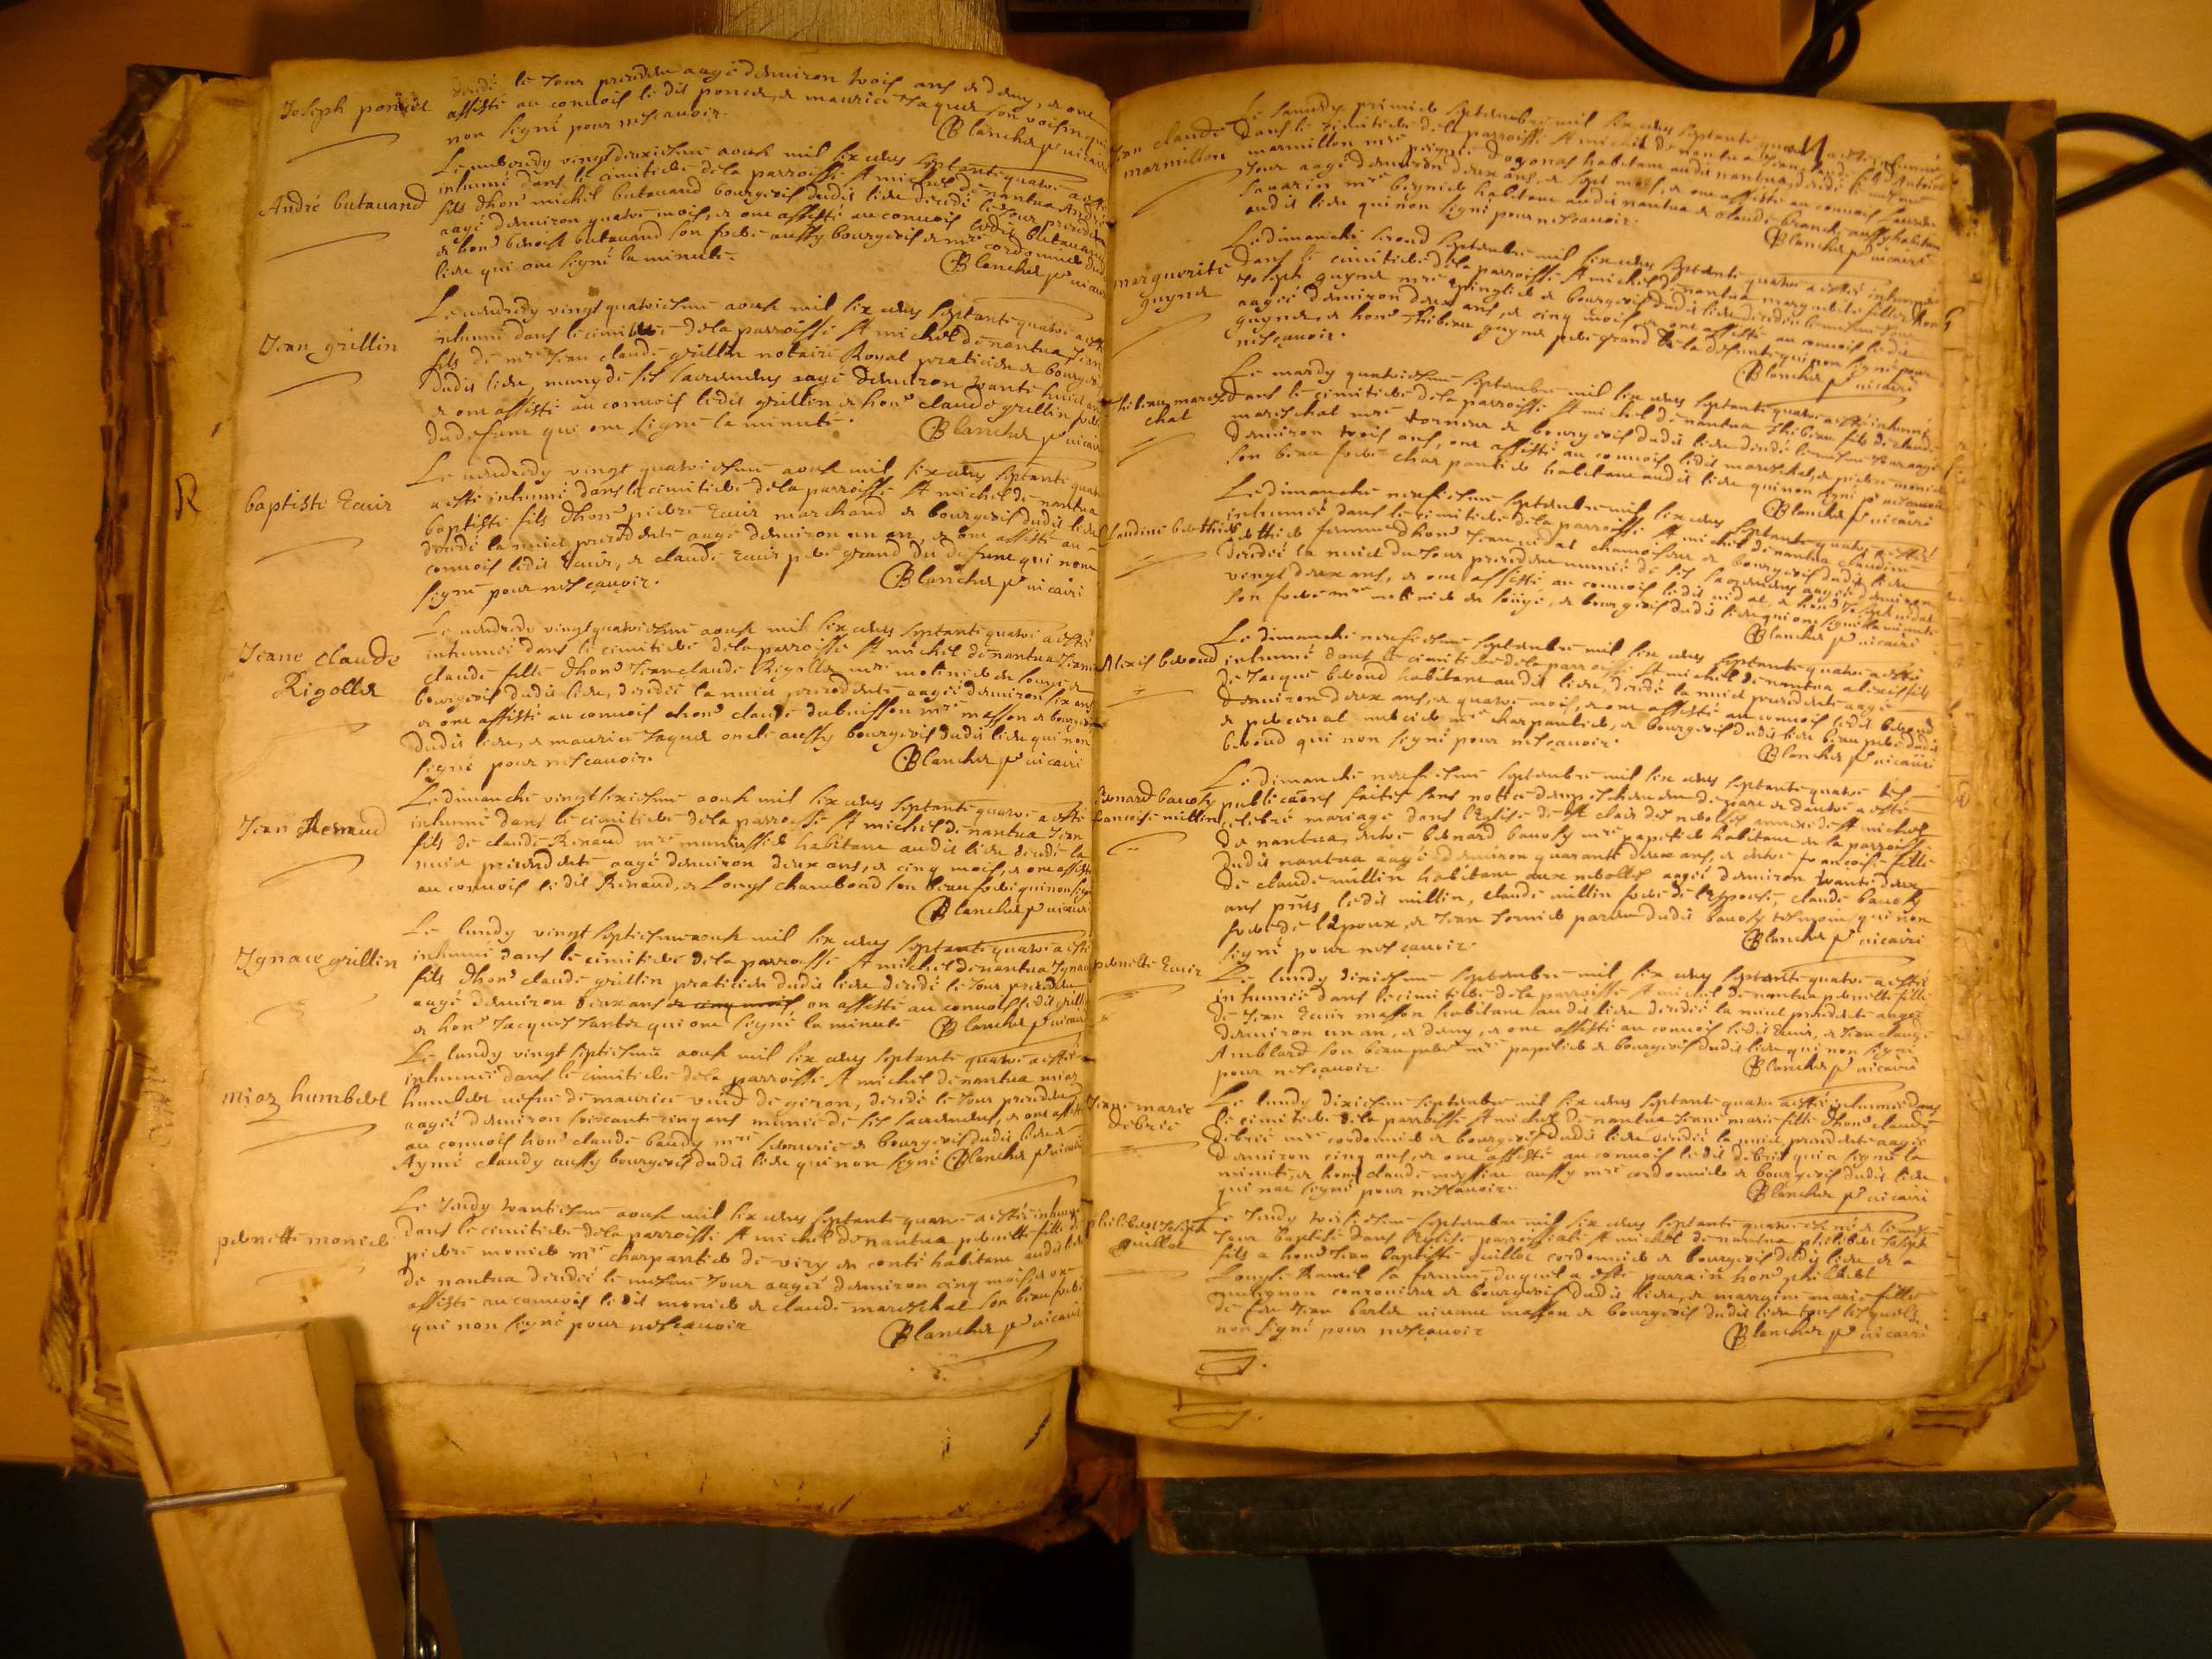 Joseph poncet
decedé le Jour precedent aagé denuiron trois ans et demy, et ont
assisté au conuois ledit poncet, et maurice Jaquet son voisin qui
non signé pour nescauoir.
Blanchet pr vicaire
André butauand
Le mercredy vingtdeuxiesme aoust mil six cens septante quatre a esté
inhumé dans le cimitiere de la parroisse St michel de nantua André
fils dhonr michel butauand bourgeois dudit lieu decedé le Jour precedent
aagé denuiron quatre mois, et ont assisté au conuois ledit butauand
et honr benoist butauand son frere aussy bourgeois et mre cordonnier dud
lieu qui ont signé la minute.
Blanchet pr vicaire
Jean grillin
Le vendredy vingtquatriesme aoust mil six cens septante quatre a esté
inhumé dans le cimitiere de la parroisse St michel de nantua Jean
fils de mre Jean claude grillin notaire Royal praticien et bourgeois
dudit lieu, muny de ses sacremens aagé denuiron trante huict ans
et ont assisté au conuois ledit grillin et honr claude grillin frere
du defunt qui ont signé la minute.
Blanchet pr vicaire
R
baptiste Euir
Le vendredy vingt quatriesme aoust mil six cens septante quatre
a esté inhumé dans le cimitiere de la parroisse St michel de nantua
baptiste fils dhonr pierre Euir marchand et bourgeois dudit lieu
decedé la nuict precedente aagé denuiron un an, et ont assisté au
conuois ledit Euir, et claude Euir pere grand du defunt qui nont
signé pour nescauoir.
Blanchet pr vicaire
Jeane claude
Rigollet
Le vendredy vingtquatriesme aoust mil six cens septante quatre a esté
inhumée dans le cimitiere de la parroisse St michel de nantua Jeane
claude fille dhonr Jean claude Rigollet mre molinier en
bourgeois dudit lieu, decedée la nuict precedente aagée denuiron six ans
et ont assisté au conuois honr claude dubuisson mre masson et bourgeois
dudit lieu, et maurice Jaquet oncle aussy bourgeois dudit lieu qui non
signé pour nescauoir.
Blanchet pr vicaire
Jean Renaud
Le dimanche vingtsixiesme aoust mil six cens septante quatre a esté
inhumé dans le cimitiere de la parroisse St michel de nantua Jean
fils de claude Renaud mre habitant audit lieu decedé la
nuict precedente aagé denuiron deux ans, et cinq mois, et ont assisté
au conuois ledit Renaud, et Louys son beau frere qui non signé
Blanchet pr vicaire
Ygnace grillin
Le lundy vingt septiesme aoust mil six cens septante quatre a esté
inhumé dans le cimitiere de la parroisse St michel de nantua Ygnace
fils dhonr claude grillin praticien dudit lieu decedé le Jour precedent
aagé denuiron deux ans et cinq mois, on assisté au conuois ledit grillin
et honr Jacques qui ont signé la minute
Blanchet pr vicaire
miaz humbert
Le lundy vingt septiesme aoust mil six cens septante quatre a esté
inhumée dans le cimitiere de la parroisse St michel de nantua miaz
humbert de maurice de giron, decedé le Jour precedent
aagée denuiron soixante cinq ans munie de ses sacremens, et ont assisté
au conuois honr claude baudy mre serrurier et bourgeois dudit lieu et
Aymé claudy aussy bourgeois dudit lieu qui non signé
Blanchet pr vicaire
pernette monier
Le Jeudy trantiesme aoust mil six cens septante quatre a esté inhumée
dans le cimitiere de la parroisse St michel de nantua pernette fille de
pierre monier mre charpantier de viry en conté habitant audit lieu
de nantua decedée le mesme Jour aagée denuiron cinq mois et ont
assisté au conuois ledit monier et claude mareschal son beau frere
qui non signé pour nescauoir
Blanchet pr vicaire
Jean claude
marmillon
Le samedy premier septembre mil six cens septante quatre a esté inhumé
dans le cimitiere de la parroisse St michel de nantua Jean claude fils dAntoine
marmillon mre habitant audit nantua, decedé le mesme
Jour aagé denuiron deux ans, et sept mois, et ont assisté au conuois
mre habitant audit nantua et claude aussy habitant
audit lieu qui non signé pour nescauoir.
Blanchet pr vicaire
marguerite
guynet
Le dimanche second septembre mil six cens septante quatre a esté inhumée
dans le cimitiere de la parroisse St michel de nantua marguerite fille dhonr
Joseph guynet mre epinglier et bourgeois dudit lieu decedée le mesme Jour
aagée denuiron deux ans, et cinq mois, et ont assisté au conuois ledit
guynet, et honr Thibeau guynet pere grand de la defunte qui non signé pour
nescauoir.
Blanchet pr vicaire
Thibeau mares
chal
Le mardy quatriesme septembre mil six cens septante quatre a esté inhumé
dans le cimitiere de la parroisse St michel de nantua Thibeau fils de claude
mareschal mre torneur et bourgeois dudit lieu decedé le mesme Jour aagé
denuiron trois ans, ont assisté au conuois ledit mareschal, et pierre monier
son beau frere charpantier habitant audit lieu qui non signé pr nescauoir
Blanchet pr vicaire
Claudine berthier
Le dimanche neufiesme septembre mil six cens septante quatre a esté
inhumée dans le cimitiere de la parroisse St michel de nantua claudine
berthier femme dhonr Jean vidal chamoiseur et bourgeois dudit lieu
decedée la nuict du Jour precedent munie de ses sacremens aagée denuiron
vingt deux ans, et ont assisté au conuois ledit vidal, et honr Joseph vidal
son frere mre molinier en soye, et bourgeois dudit lieu qui ont signé la minute
Blanchet pr vicaire
Alexis beroud
Le dimanche neufiesme septembre mil six cens septante quatre a esté
inhumé dans le cimitiere de la parroisse St michel de nantua alexis fils
de Jaque beroud habitant audit lieu, decedé la nuict precedente aagé
denuiron deux ans, et quatre mois, et ont assisté au conuois ledit beroud
et mercier mre charpantier, et bourgeois dudit lieu beau pere dudit
beroud qui non signé pour nescauoir.
Blanchet pr vicaire
Benard bauosy
francoise millin
Le dimanche neufiesme septembre mil six cens septante quatre les
publicaons faites sans notice dempeschement de part et dautre a esté
celebré mariage dans lEglise de St clair des nerolles annexe de St michel
de nantua, entre benard bauosy mre papetier habitant en la parroisse
dudit nantua aagé denuiron quarante deux ans, et entre francoise fille
de claude millin habitant aux nerolles aagée denuiron trante deux
ans puis ledit millin, claude millin frere de lEspouse, claude bauosy
frere de lépoux, et Jean parent dudit bauosy tesmoins qui non
signé pour nescauoir.
Blanchet pr vicaire
pernette Euir
Le lundy dixiesme septembre mil six cens septante quatre a esté
inhumée dans le cimitiere de la parroisse St michel de nantua pernette fille
de Jean Euir masson habitant audit lieu decedée la nuict precedente aagée
denuiron un an, et demy, et ont assisté au conuois ledit Euir, et Jean claude
Amblard son beau pere mre papetier et bourgeois dudit lieu qui non signé
pour nescauoir.
Blanchet pr vicaire
Jeane marie
debrie
Le lundy dixiesme septembre mil six cens septante quatre a esté inhumée dans
le cimitiere de la parroisse St michel de nantua Jeane marie fille dhonr claude
debrie mre cordonnier et bourgeois dudit lieu decedée la nuict precedente aagée
denuiron cinq ans, et ont assisté au conuois ledit debrie qui a signé la
minute, et honr claude aussy mre cordonnier et bourgeois dudit lieu
qui nae signé pour nescauoir.
Blanchet pr vicaire
philibert Joseph
guillot
Le Jeudy septembre mil six cens septante quatre est né et le mesme
Jour baptisé dans lEglise parrossiale St michel de nantua philibert Joseph
fils a honr Jean baptiste guillot cordonnier et bourgeois dudit lieu et a
Louyse Ramel sa femme, duquel a esté parrain honr philibert
et bourgeois dudit lieu, et marraine marie fille
de feu Jean viuant masson et bourgeois dudit lieu tous lesquels
non signé pour nescauoir
Blanchet pr vicaire